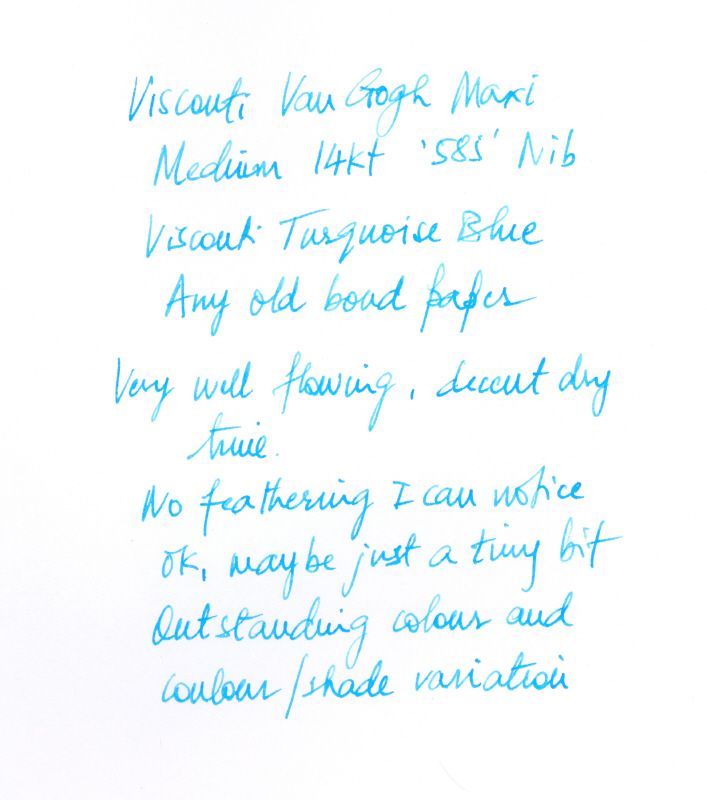 Visconti Van Gogh Maxi
Medium 14kt '585' Nib
Visconti Turquoise Blue
Any old bond paper
Very well flowing, decent dry
time.
No feathering I can notice
OK, maybe just a tiny bit
Outstanding colour and
coulour/shade variation